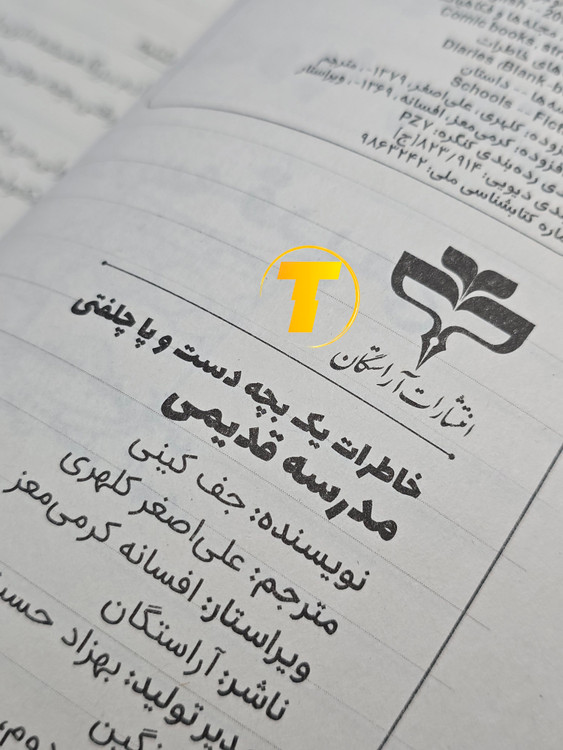 Comic books, str
های خاطرات
Diaries (Blank-b
ها -- داستان
Schools -- Fict
افزوده: کلهری، علی‌اصغر، ۱۳۷۹-، مترجم
افزوده: کرمی‌معز، افسانه، ۱۳۶۹-، ویراستار
رده‌بندی کنگره: PZ۷
دیویی: ۸۲۳/۹۱۴ [ج]
کتابشناسی ملی: ۹۸۶۳۲۴۲
T
انتشارات آراستگان
خاطرات یک بچه دست و پا چلفتی
مدرسه قدیمی
نویسنده: جف کینی
مترجم: علی‌اصغر کلهری
ویراستار: افسانه کرمی‌معز
ناشر: آراستگان
دیر تولید: بهزاد حسن
نگین
دوم،